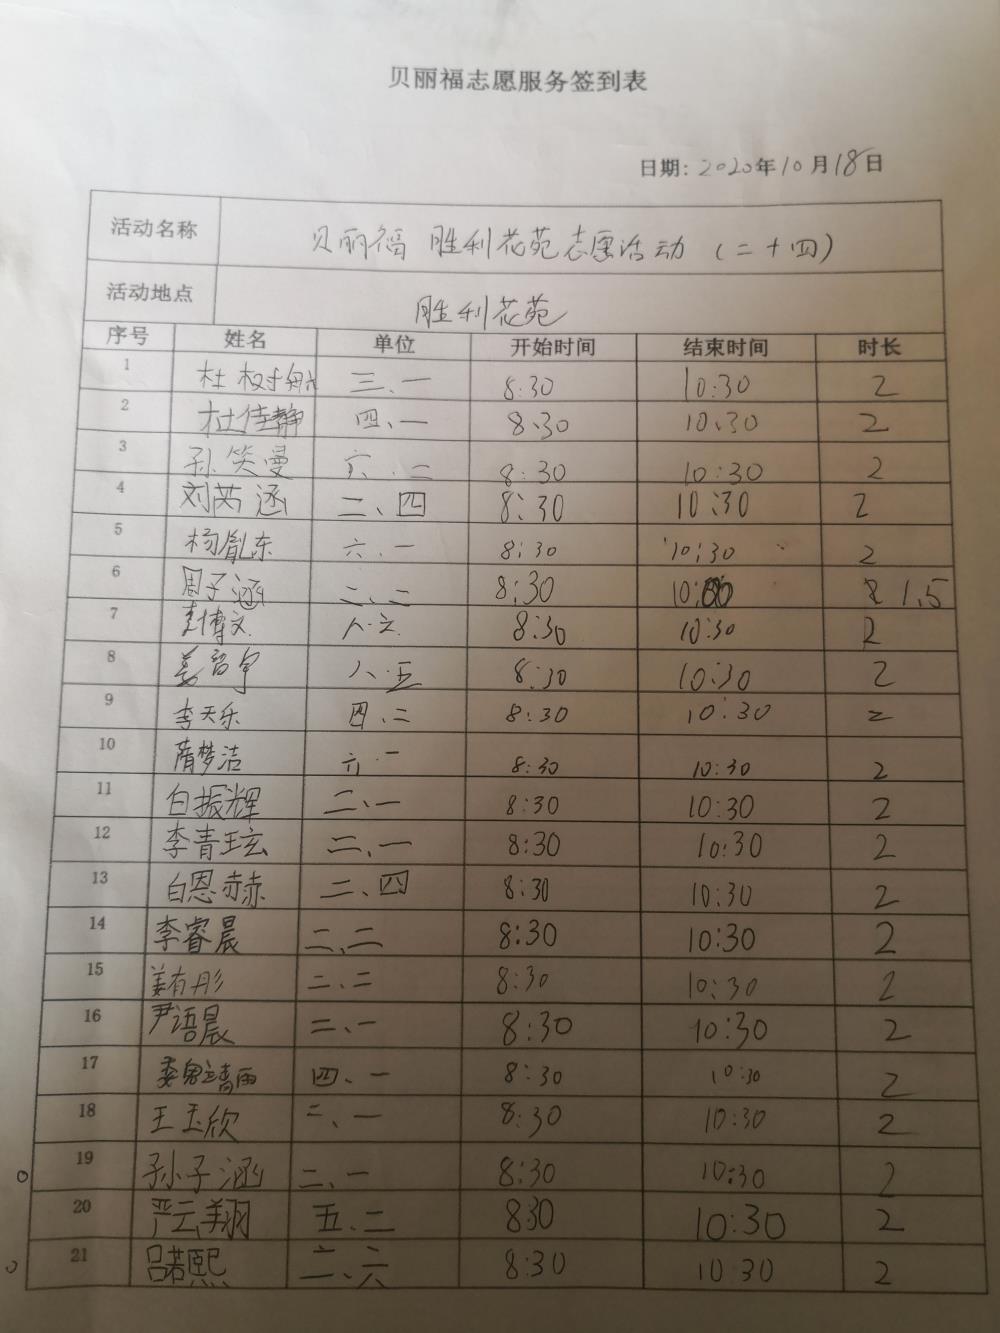 贝丽福志愿服务签到表
日期: 2020年10月18日
活动名称 贝丽福 胜利花苑志愿活动（二十四）
活动地点 胜利花苑
序号 姓名 单位 开始时间 结束时间 时长
1 杜 三、一 8:30 10:30 2
2 杜佳静 四、一 8:30 10:30 2
3 孙笑曼 六、二 8:30 10:30 2
4 刘芮涵 二、四 8:30 10:30 2
5 杨胤东 六、一 8:30 10:30 2
6 周子涵 二、二 8:30 10:00 1.5
7 博文 八、六 8:30 10:30 2
8 姜 宇 八、五 8:30 10:30 2
9 李天乐 四、二 8:30 10:30 2
10 隋梦洁 六、一 8:30 10:30 2
11 白振辉 二、一 8:30 10:30 2
12 李青玹 二、一 8:30 10:30 2
13 白恩赫 二、四 8:30 10:30 2
14 李睿晨 二、二 8:30 10:30 2
15 姜有彤 二、二 8:30 10:30 2
16 尹语晨 二、一 8:30 10:30 2
17 四、一 8:30 10:30 2
18 王玉欣 二、一 8:30 10:30 2
19 孙子涵 二、一 8:30 10:30 2
20 严云翔 五、二 830 10:30 2
21 吕若熙 二、六 8:30 10 30 2